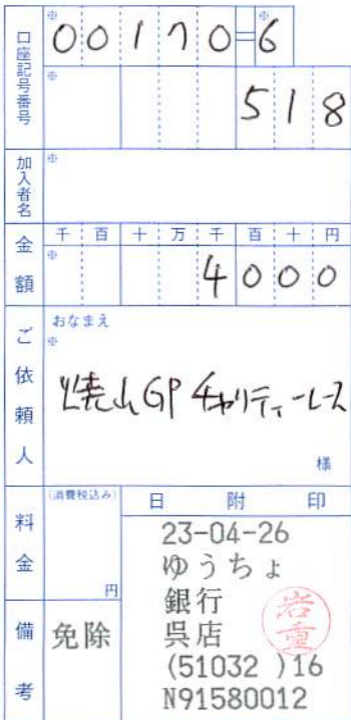 口座記号番号
※ 00170=6 ※
※ 518
加入者名
※
金額
千 百 十 万 千 百 十 円
※ 4000
ご依頼人
おなまえ
※
焼山GPチャリティーレース
様
料金
(消費税込み)
円
備考
免除
日附印
23-04-26
ゆうちょ
銀行
呉店
(51032 )16
N91580012
岩重